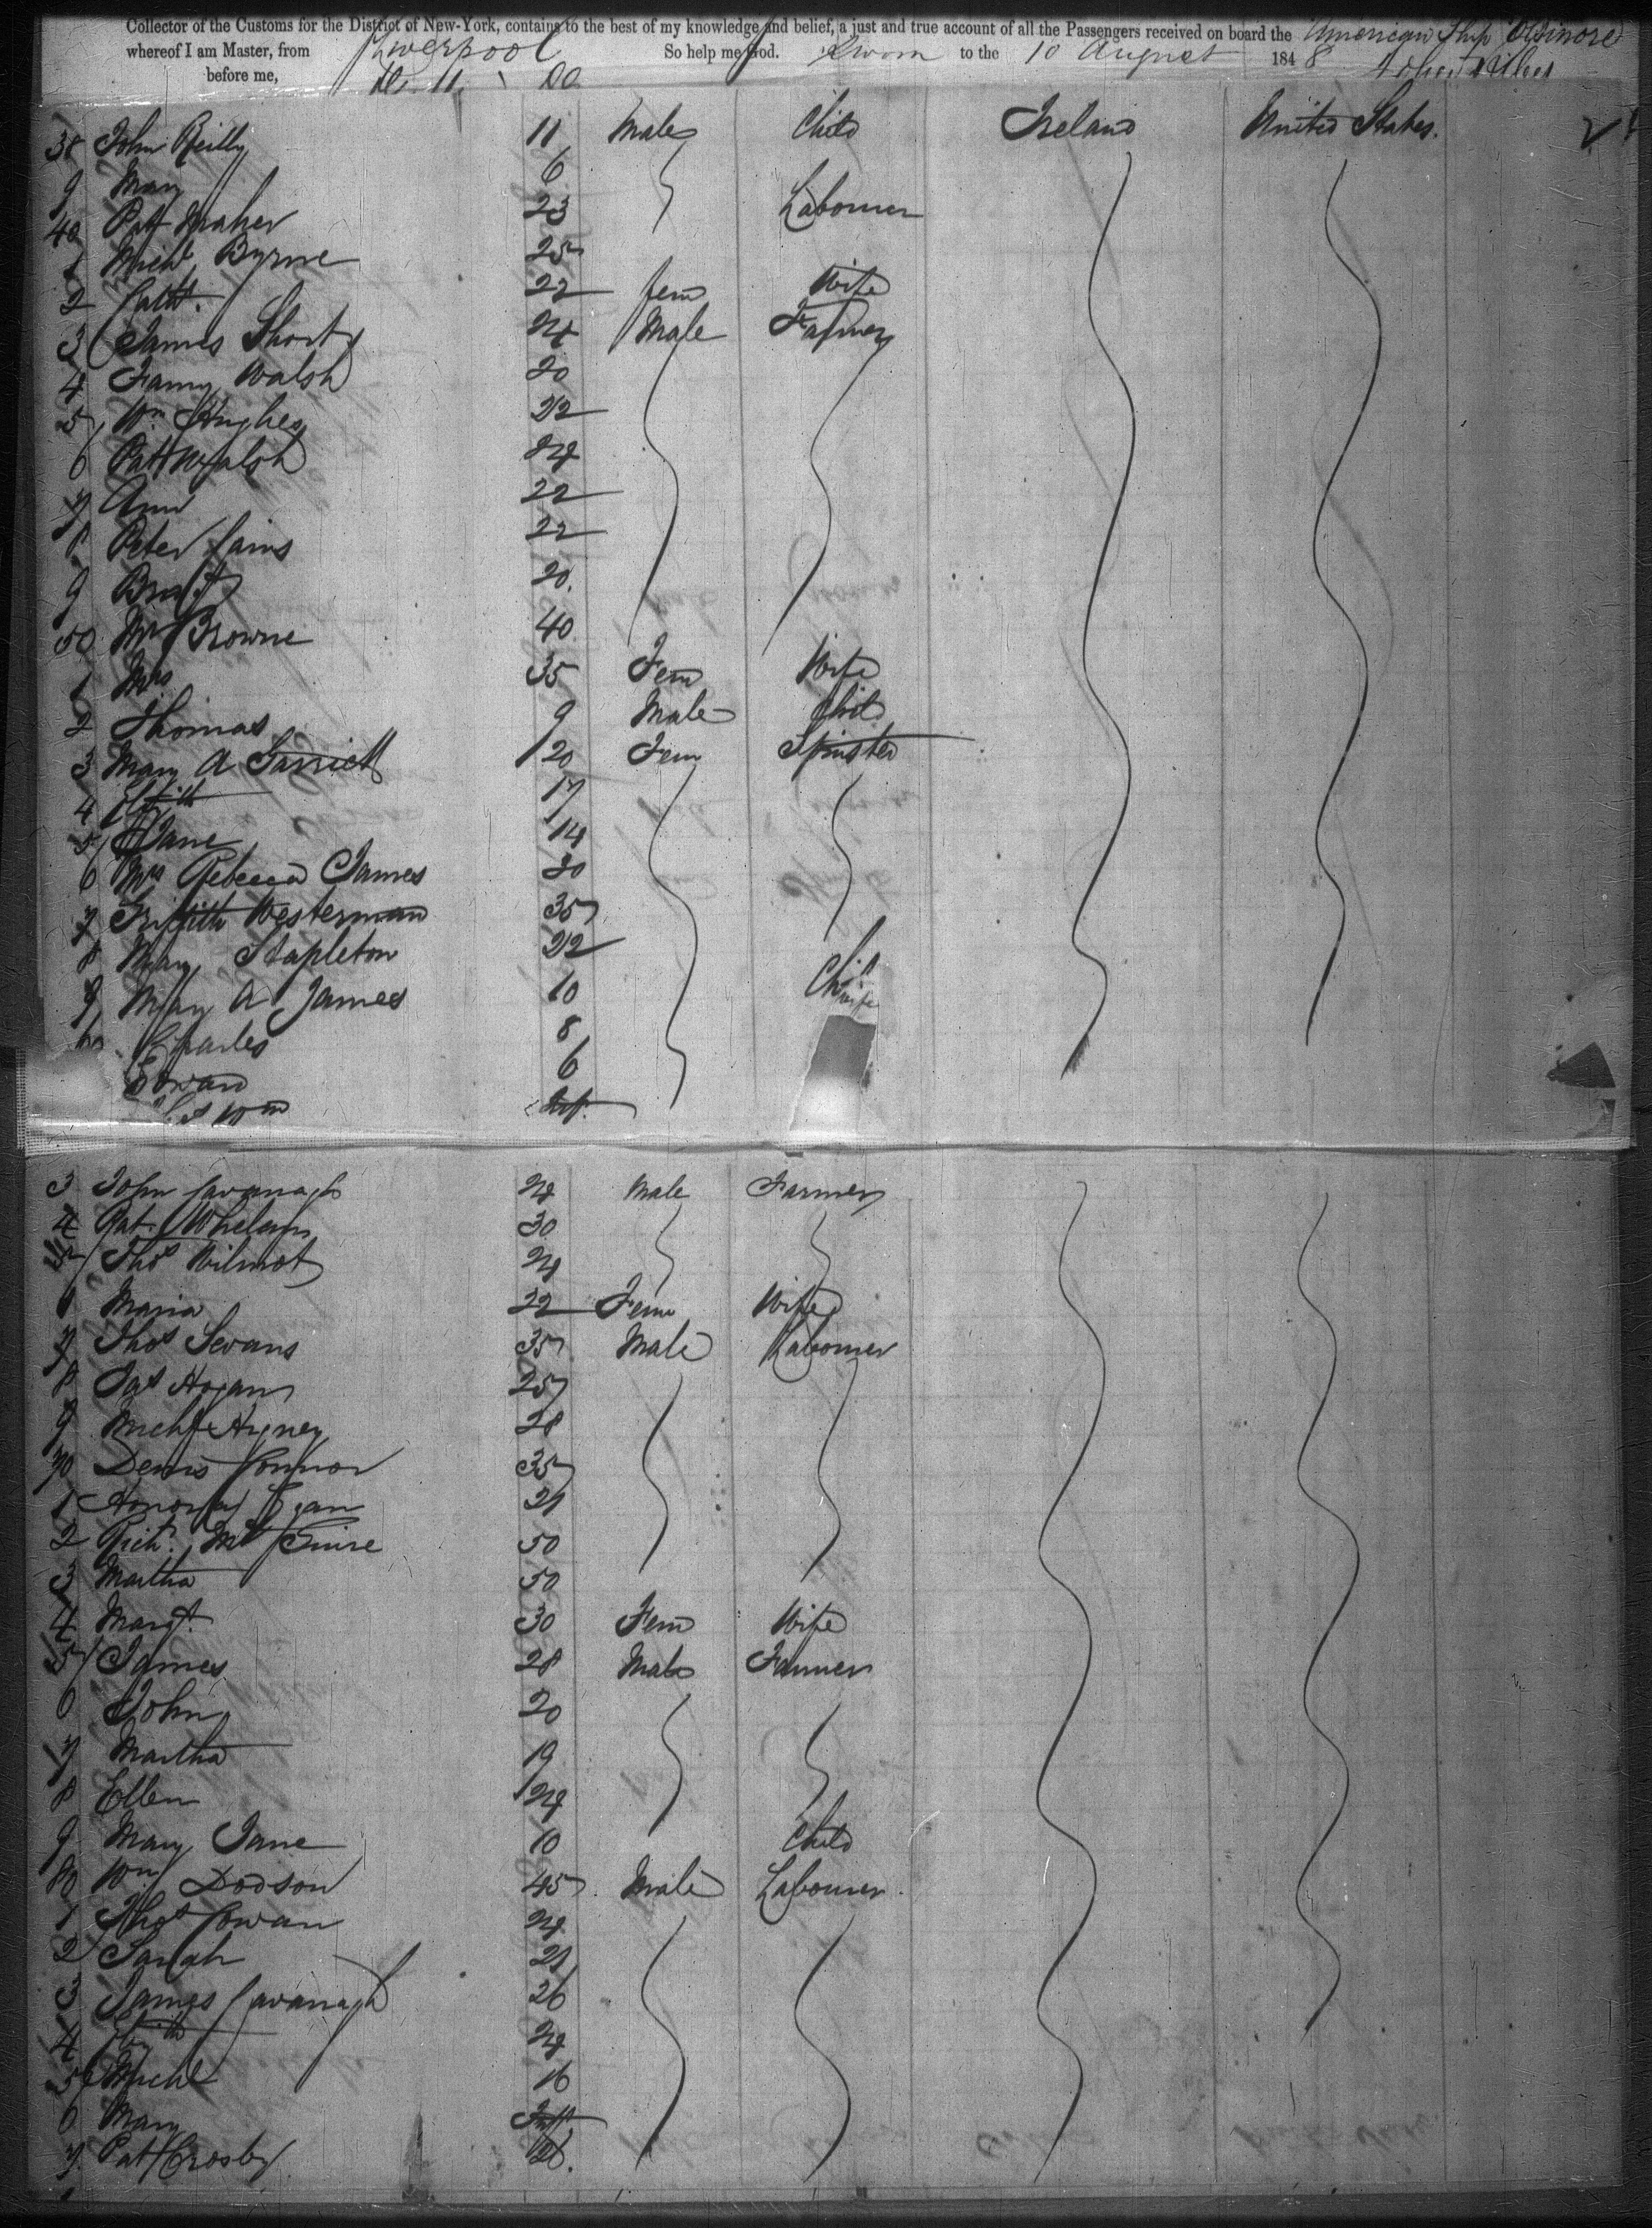 Collector of the Customs for the District of New-York, contains to the best of my knowledge and belief, a just and true account of all the Passengers received on board the American Ship Elsinore
whereof I am Master, from Liverpool So help me God. Sworn to the 10 August 1848
before me,
38 John Reilly 11 Male Child Ireland United States.
9 Mary 6
40 Pat Maher 23 Labourer
1 Michl Byrne 25
2 Cath. 22 fem Wife
3 James Short 24 Male Farmer
4 Fanny Walsh 20
5 Wm Hughes 22
6 Patt Walsh 24
7 Ann 22
8 Peter Cairns 22
9 Bridt 20.
50 Mr Browne 40
1 Mrs 35 Fem Wife
2 Thomas 9 Male Child
3 Mary A Garrick 20 Fem Spinster
4 Elizth 17
5 Jane 14
6 Mrs Rebecca James 30
7 Griffith Westerman 35
8 Mary Stapleton 22
9 Mary A James 10 Child
60 Charles 8
Edward 6
Wm Inf.
3 John Cavanagh 24 Male Farmer
4 Pat. Whelan 30
5 Thos Wilmot 24
6 Maria 22 Fem Wife
7 Thos Sevans 35 Male Labourer
8 Jas Hogan 25
9 Michl 28
70 Denis Connor 35
1 Honora Egan 21
2 Rich. McGuire 50
3 Martha 50
4 Margt. 30 Fem Wife
5 James 28 Male Farmer
6 John 20
7 Martha 19
8 Ellen 24
9 Mary Jane 10 Child
80 Wm Dodson 45 Male Labourer
1 Thos Cowan 24
2 Sarah 21
3 James Cavanagh 26
4 Elizth 24
5 Michl 16
6 Mary Inft
7. Pat Crosby 26.